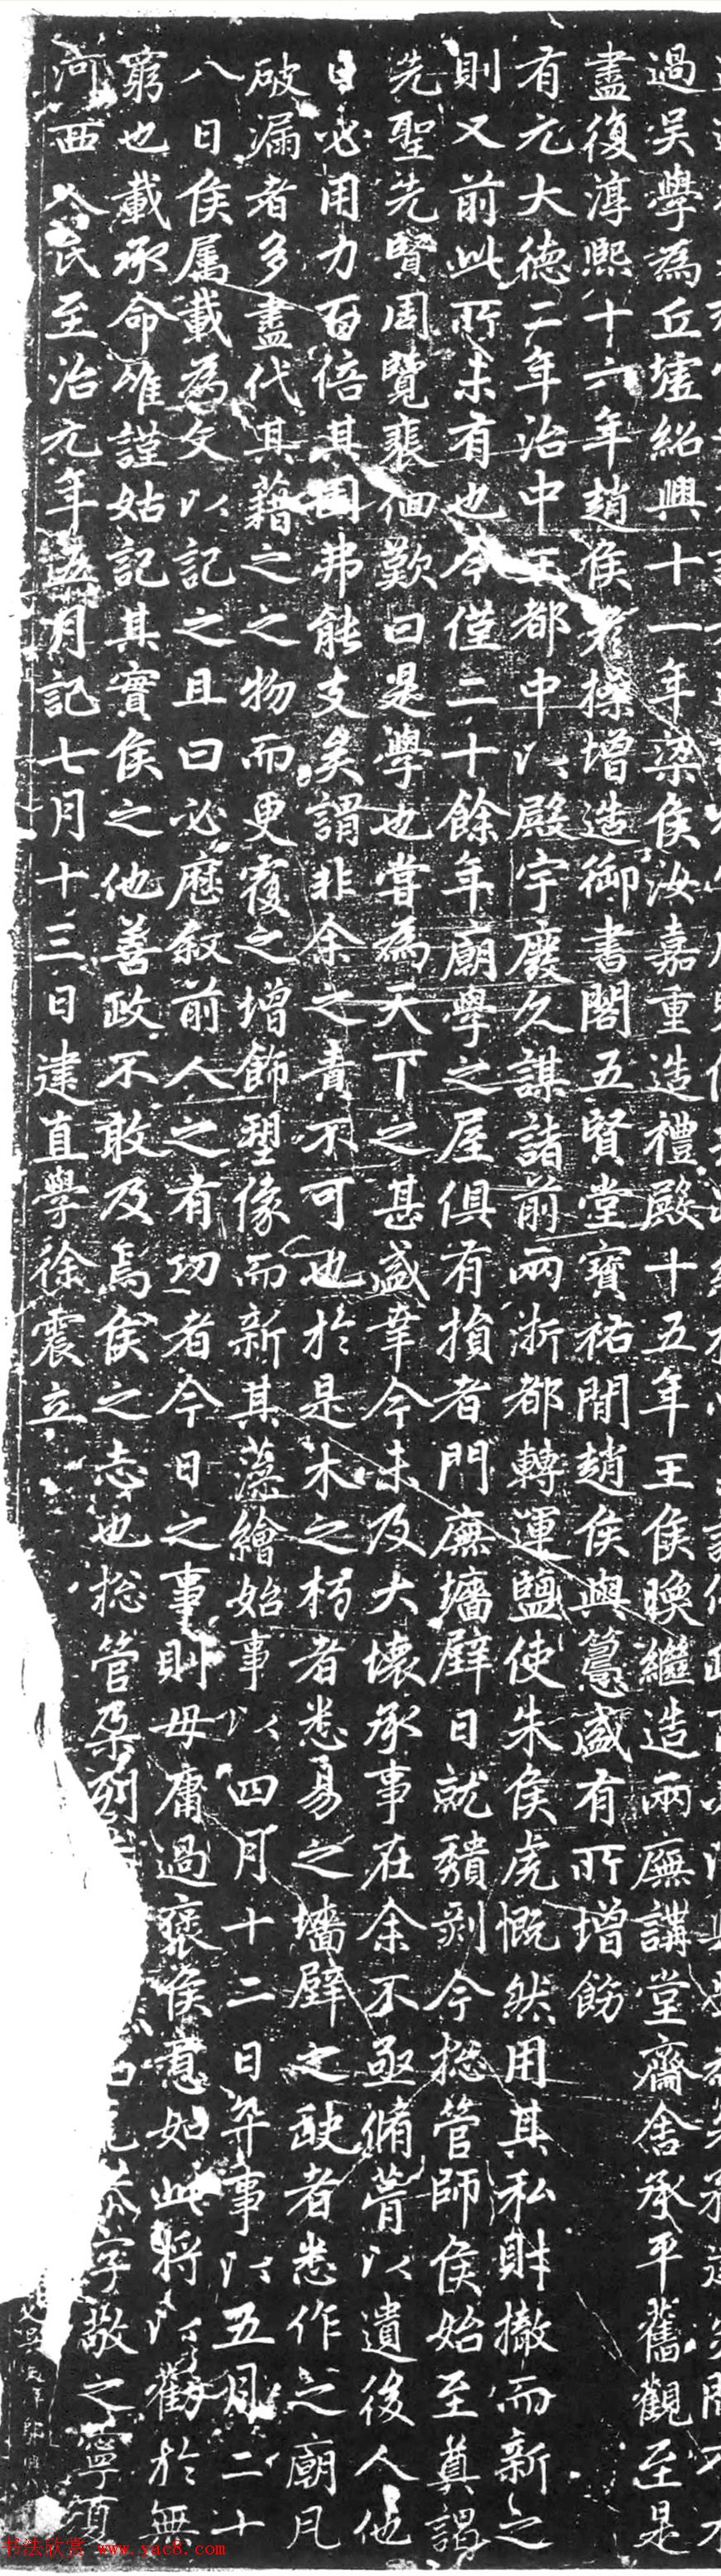 過吳學為丘墟紹興十一年梁侯汝嘉重造禮殿十五年王侯㬇繼造兩廡講堂齋舍承平舊觀至是
盡復淳熙十六年趙侯彥操增造御書閣五賢堂寶祐間趙侯與𥲅咸有所增飭
有元大德二年治中王都中以殿宇廢久謀諸前兩浙都轉運鹽使朱侯虎慨然用其私財撤而新之
則又前此所未有也今僅二十餘年廟學之屋俱有損者門廡墻壁日就隳剝今捴管師侯始至奠謁
先聖先賢周覽裴佪歎曰是學也嘗為天下之甚盛幸今未及大壞承事在余不亟脩葺以遺後人他
日必用力百倍其困弗能支矣謂非余之責不可也於是木之朽者悉易之墻壁之缺者悉作之廟凡
破漏者多盡代其藉之之物而更覆之增飾塑像而新其藻繪始事以四月十二日卒事以五月二十
八日侯属載為文以記之且曰必歷叙前人之有功者今日之事則毋庸過褒侯意如此將以勸於無
窮也載承命唯謹姑記其實侯之他善政不敢及焉侯之志也捴管朶列 字敬之寧夏
河西人氏至治元年五月記七月十三日建直學徐震立
书法欣赏 www.yac8.com